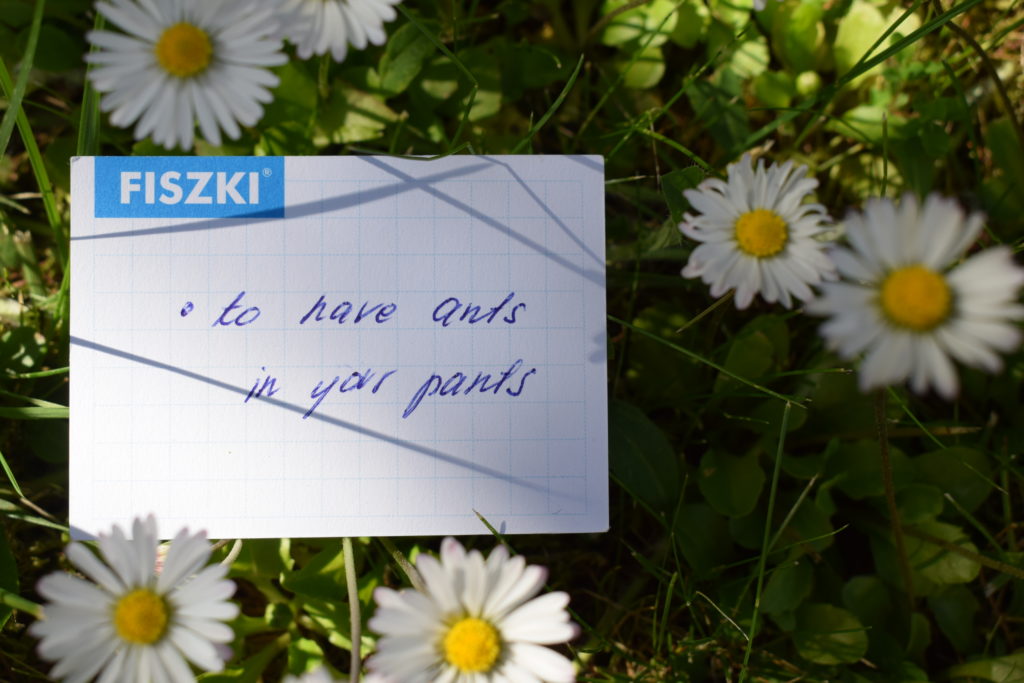 FISZKI®
• to have ants
in your pants